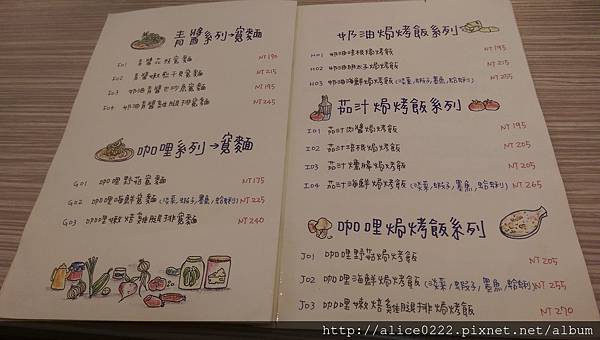 青醬系列→寬麵
F01 青醬 寬麵 NT 190
F02 青醬嫩 干貝寬麵 NT 215
F03 奶油青醬 寬麵 NT 195
F04 奶油青醬雞腿排寬麵 NT 245
咖哩系列→寬麵
G01 咖哩野菇寬麵 NT 175
G02 咖哩海鮮寬麵(淡菜,蝦子,墨魚,蛤蜊) NT 225
G03 咖哩嫩焙雞腿排寬麵 NT 240
奶油焗烤飯系列
H01 奶油培根焗烤飯 NT 195
H02 奶油明太子焗烤飯 NT 215
H03 奶油海鮮焗烤飯(淡菜,蝦子,墨魚,蛤蜊) NT 255
茄汁焗烤飯系列
I01 茄汁肉醬焗烤飯 NT 195
I02 茄汁培根焗烤飯 NT 205
I03 茄汁燻腸焗烤飯 NT 205
I04 茄汁海鮮焗烤飯(淡菜,蝦子,墨魚,蛤蜊) NT 265
咖哩焗烤飯系列
J01 咖哩野菇焗烤飯 NT 205
J02 咖哩海鮮焗烤飯(淡菜,蝦子,墨魚,蛤蜊) NT 255
J03 咖哩嫩焙雞腿排焗烤飯 NT 270
http://alice0222.pixnet.net/album